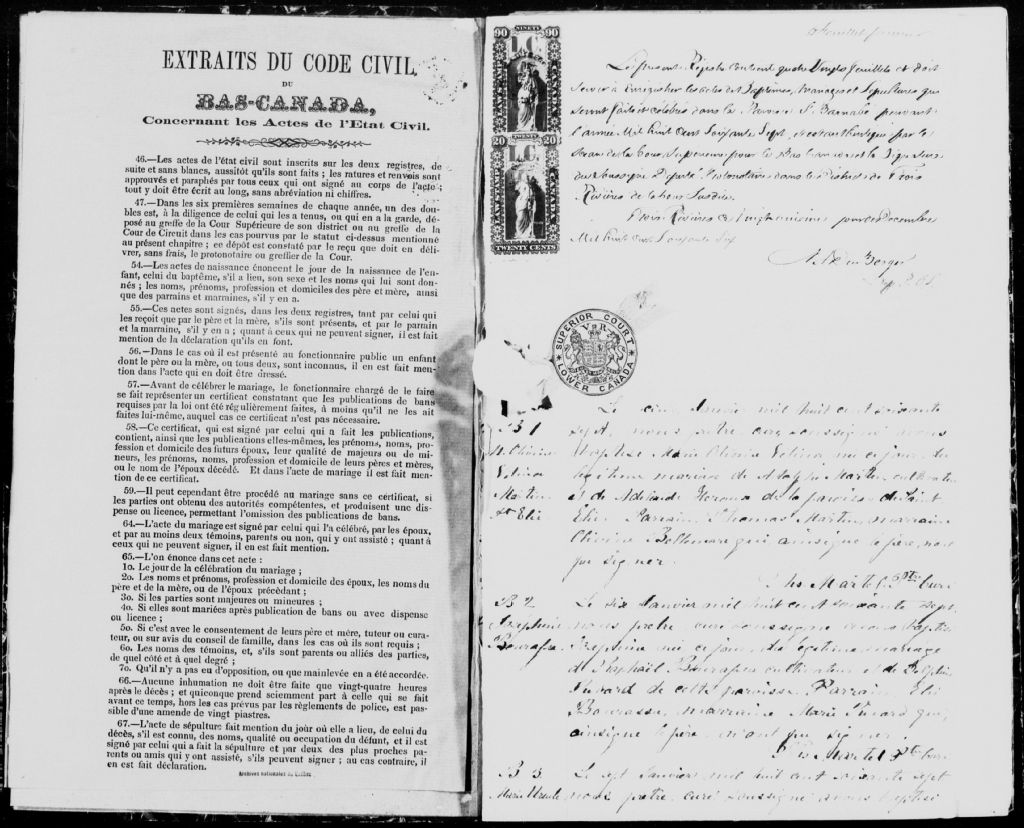 EXTRAITS DU CODE CIVIL
DU
BAS-CANADA,
Concernant les Actes de l'Etat Civil.
46.—Les actes de l'état civil sont inscrits sur les deux registres, de
suite et sans blancs, aussitôt qu'ils sont faits ; les ratures et renvois sont
approuvés et paraphés par tous ceux qui ont signé au corps de l'acte ;
tout y doit être écrit au long, sans abréviation ni chiffres.
47.—Dans les six premières semaines de chaque année, un des dou-
bles est, à la diligence de celui qui les a tenus, ou qui en a la garde, dé-
posé au greffe de la Cour Supérieure de son district ou au greffe de la
Cour de Circuit dans les cas pourvus par le statut ci-dessus mentionné
au présent chapitre ; ce dépôt est constaté par le reçu que doit en déli-
vrer, sans frais, le protonotaire ou greffier de la Cour.
54.—Les actes de naissance énoncent le jour de la naissance de l'en-
fant, celui du baptême, s'il a lieu, son sexe et les noms qui lui sont don-
nés ; les noms, prénoms, profession et domiciles des père et mère, ainsi
que des parrains et marraines, s'il y en a.
55.—Ces actes sont signés, dans les deux registres, tant par celui qui
les reçoit que par le père et la mère, s'ils sont présents, et par le parrain
et la marraine, s'il y en a ; quant à ceux qui ne peuvent signer, il est fait
mention de la déclaration qu'ils en font.
56.—Dans le cas où il est présenté au fonctionnaire public un enfant
dont le père ou la mère, ou tous deux, sont inconnus, il en est fait men-
tion dans l'acte qui en doit être dressé.
57.—Avant de célébrer le mariage, le fonctionnaire chargé de le faire
se fait représenter un certificat constatant que les publications de bans
requises par la loi ont été régulièrement faites, à moins qu'il ne les ait
faites lui-même, auquel cas ce certificat n'est pas nécessaire.
58.—Ce certificat, qui est signé par celui qui a fait les publications,
contient, ainsi que les publications elles-mêmes, les prénoms, noms, pro-
fession et domicile des futurs époux, leur qualité de majeurs ou de mi-
neurs, les prénoms, noms, profession et domicile de leurs pères et mères,
ou le nom de l'époux décédé. Et dans l'acte de mariage il est fait men-
tion de ce certificat.
59.—Il peut cependant être procédé au mariage sans ce certificat, si
les parties ont obtenu des autorités compétentes, et produisent une dis-
pense ou licence, permettant l'omission des publications de bans.
64.—L'acte du mariage est signé par celui qui l'a célébré, par les époux,
et par au moins deux témoins, parents ou non, qui y ont assisté ; quant à
ceux qui ne peuvent signer, il en est fait mention.
65.—L'on énonce dans cet acte :
1o. Le jour de la célébration du mariage ;
2o. Les noms et prénoms, profession et domicile des époux, les noms du
père et de la mère, ou de l'époux précédent ;
3o. Si les parties sont majeures ou mineures ;
4o. Si elles sont mariées après publication de bans ou avec dispense
ou licence ;
5o. Si c'est avec le consentement de leurs père et mère, tuteur ou cura-
teur, ou sur avis du conseil de famille, dans les cas où ils sont requis ;
6o. Les noms des témoins, et, s'ils sont parents ou alliés des parties,
de quel côté et à quel degré ;
7o. Qu'il n'y a pas eu d'opposition, ou que mainlevée en a été accordée.
66.—Aucune inhumation ne doit être faite que vingt-quatre heures
après le décès ; et quiconque prend sciemment part à celle qui se fait
avant ce temps, hors les cas prévus par les règlements de police, est pas-
sible d'une amende de vingt piastres.
67.—L'acte de sépulture fait mention du jour où elle a lieu, de celui du
décès, s'il est connu, des noms, qualité ou occupation du défunt, et il est
signé par celui qui a fait la sépulture et par deux des plus proches pa-
rents ou amis qui y ont assisté, s'ils peuvent signer ; au cas contraire, il
en est fait déclaration.
Archives nationales du Québec
90 NINETY 90
L.C.
TWENTY
20 20
L.C.
TWENTY CENTS
Le présent Régistre contient quatre Vingts feuillets et doit
Servir à Enregistrer les actes des Baptêmes, Mariages et Sépultures qui
seront faits et célébrés dans la Paroisse St. Barnabé pendant
l'année Mil huit Cent Soixante Sept, et est authentiqué par le
Sceau de la Cour Supérieure pour le Bas Canada et la Signature
du Soussigné Député Protonotaire dans le District de Trois
Rivières de la Cour Susdite.
Trois Rivières ce Vingt unième jour de Décembre
Mil huit Cent Soixante Six
SUPERIOR COURT
V R
LOWER CANADA
B 1
M. Olivine
Exlina
Martin
St Elie
Le cinq Janvier mil huit cent soixante
sept, nous prêtre curé soussigné avons
baptisé Marie Olivine Exlina née ce jour du
légitime mariage de Martin, cultivateur
et de de la paroisse de Saint
Elie. Parrain Thomas Martin, marraine
Olivine Bellemare qui ainsi que le père, n'ont
pu signer.
Martel Ptre curé
B 2
Josephine
Bourassa
Le six Janvier mil huit cent soixante sept,
nous prêtre curé soussigné avons baptisé
Josephine née ce jour du légitime mariage
de Raphaël Bourassa cultivateur et de Delphine
de cette paroisse. Parrain Elie
Bourassa, marraine Marie qui,
ainsi que le père, n'ont pu signer.
Martel Ptre curé
B 3
Marie Ursule
Le sept Janvier mil huit cent soixante sept
nous prêtre curé soussigné avons baptisé